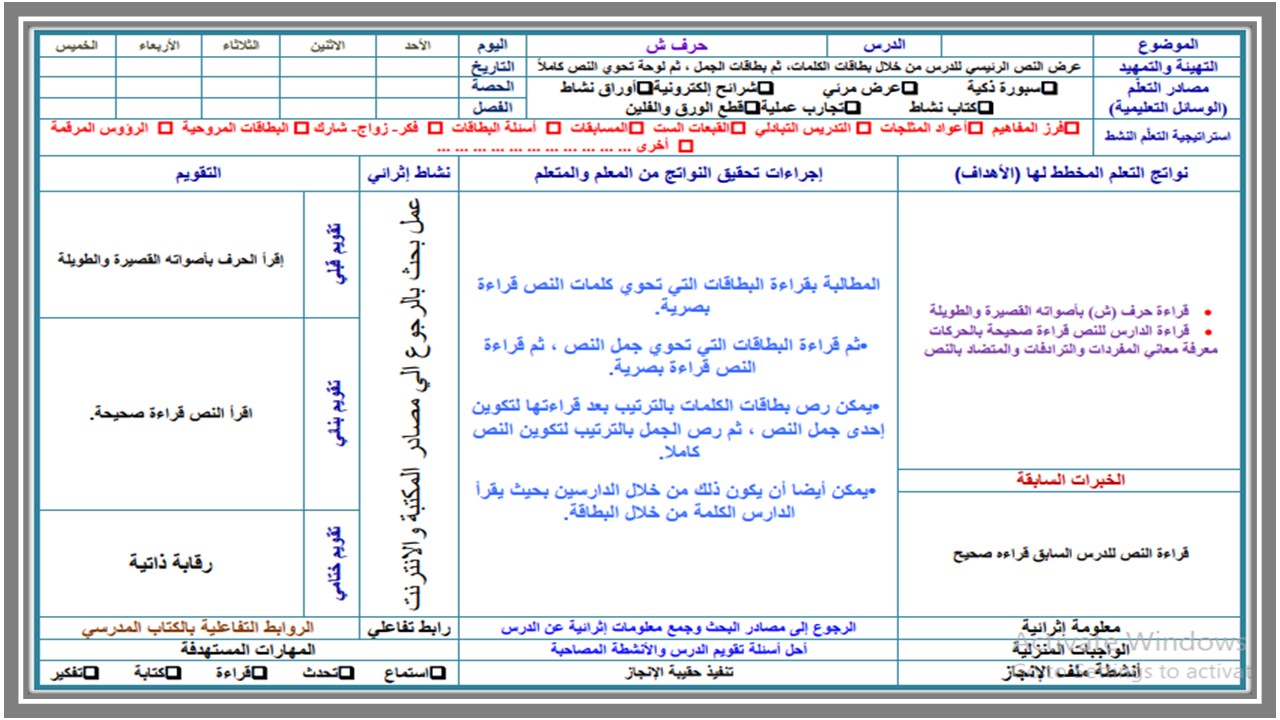 الموضوع
الدرس
حرف ش
اليوم
الأحد
الاثنين
الثلاثاء
الأربعاء
الخميس
التهيئة والتمهيد
عرض النص الرئيسي للدرس من خلال بطاقات الكلمات، ثم بطاقات الجمل ، ثم لوحة تحوي النص كاملاً
التاريخ
مصادر التعلّم
(الوسائل التعليمية)
سبورة ذكية عرض مرئي شرائح إلكترونية أوراق نشاط
كتاب نشاط تجارب عملية قطع الورق والفلين
الحصة
الفصل
استراتيجية التعلّم النشط
فرز المفاهيم أعواد المثلجات التدريس التبادلي القبعات الست المسابقات أسئلة البطاقات فكر- زواج- شارك البطاقات المروحية الرؤوس المرقمة
أخرى ... ... ... ... ... ... ... ... ... ... ...
نواتج التعلم المخطط لها (الأهداف)
إجراءات تحقيق النواتج من المعلم والمتعلم
نشاط إثرائي
التقويم
• قراءة حرف (ش) بأصواته القصيرة والطويلة
• قراءة الدارس للنص قراءة صحيحة بالحركات
معرفة معاني المفردات والترادفات والمتضاد بالنص
الخبرات السابقة
قراءة النص للدرس السابق قراءه صحيح
المطالبة بقراءة البطاقات التي تحوي كلمات النص قراءة
بصرية.
•ثم قراءة البطاقات التي تحوي جمل النص ، ثم قراءة
النص قراءة بصرية.
•يمكن رص بطاقات الكلمات بالترتيب بعد قراءتها لتكوين
إحدى جمل النص ، ثم رص الجمل بالترتيب لتكوين النص
كاملا.
•يمكن أيضا أن يكون ذلك من خلال الدارسين بحيث يقرأ
الدارس الكلمة من خلال البطاقة.
عمل بحث بالرجوع الي مصادر المكتبة والانترنت
تقويم قبلي
إقرأ الحرف بأصواته القصيرة والطويلة
تقويم بنائي
اقرأ النص قراءة صحيحة.
تقويم ختامي
رقابة ذاتية
معلومة إثرائية
الرجوع إلى مصادر البحث وجمع معلومات إثرائية عن الدرس
رابط تفاعلي
الروابط التفاعلية بالكتاب المدرسي
الواجبات المنزلية
أحل أسئلة تقويم الدرس والأنشطة المصاحبة
المهارات المستهدفة
أنشطة ملف الإنجاز
تنفيذ حقيبة الإنجاز
استماع تحدث قراءة كتابة تفكير
Activate Windows
Go to Settings to activat